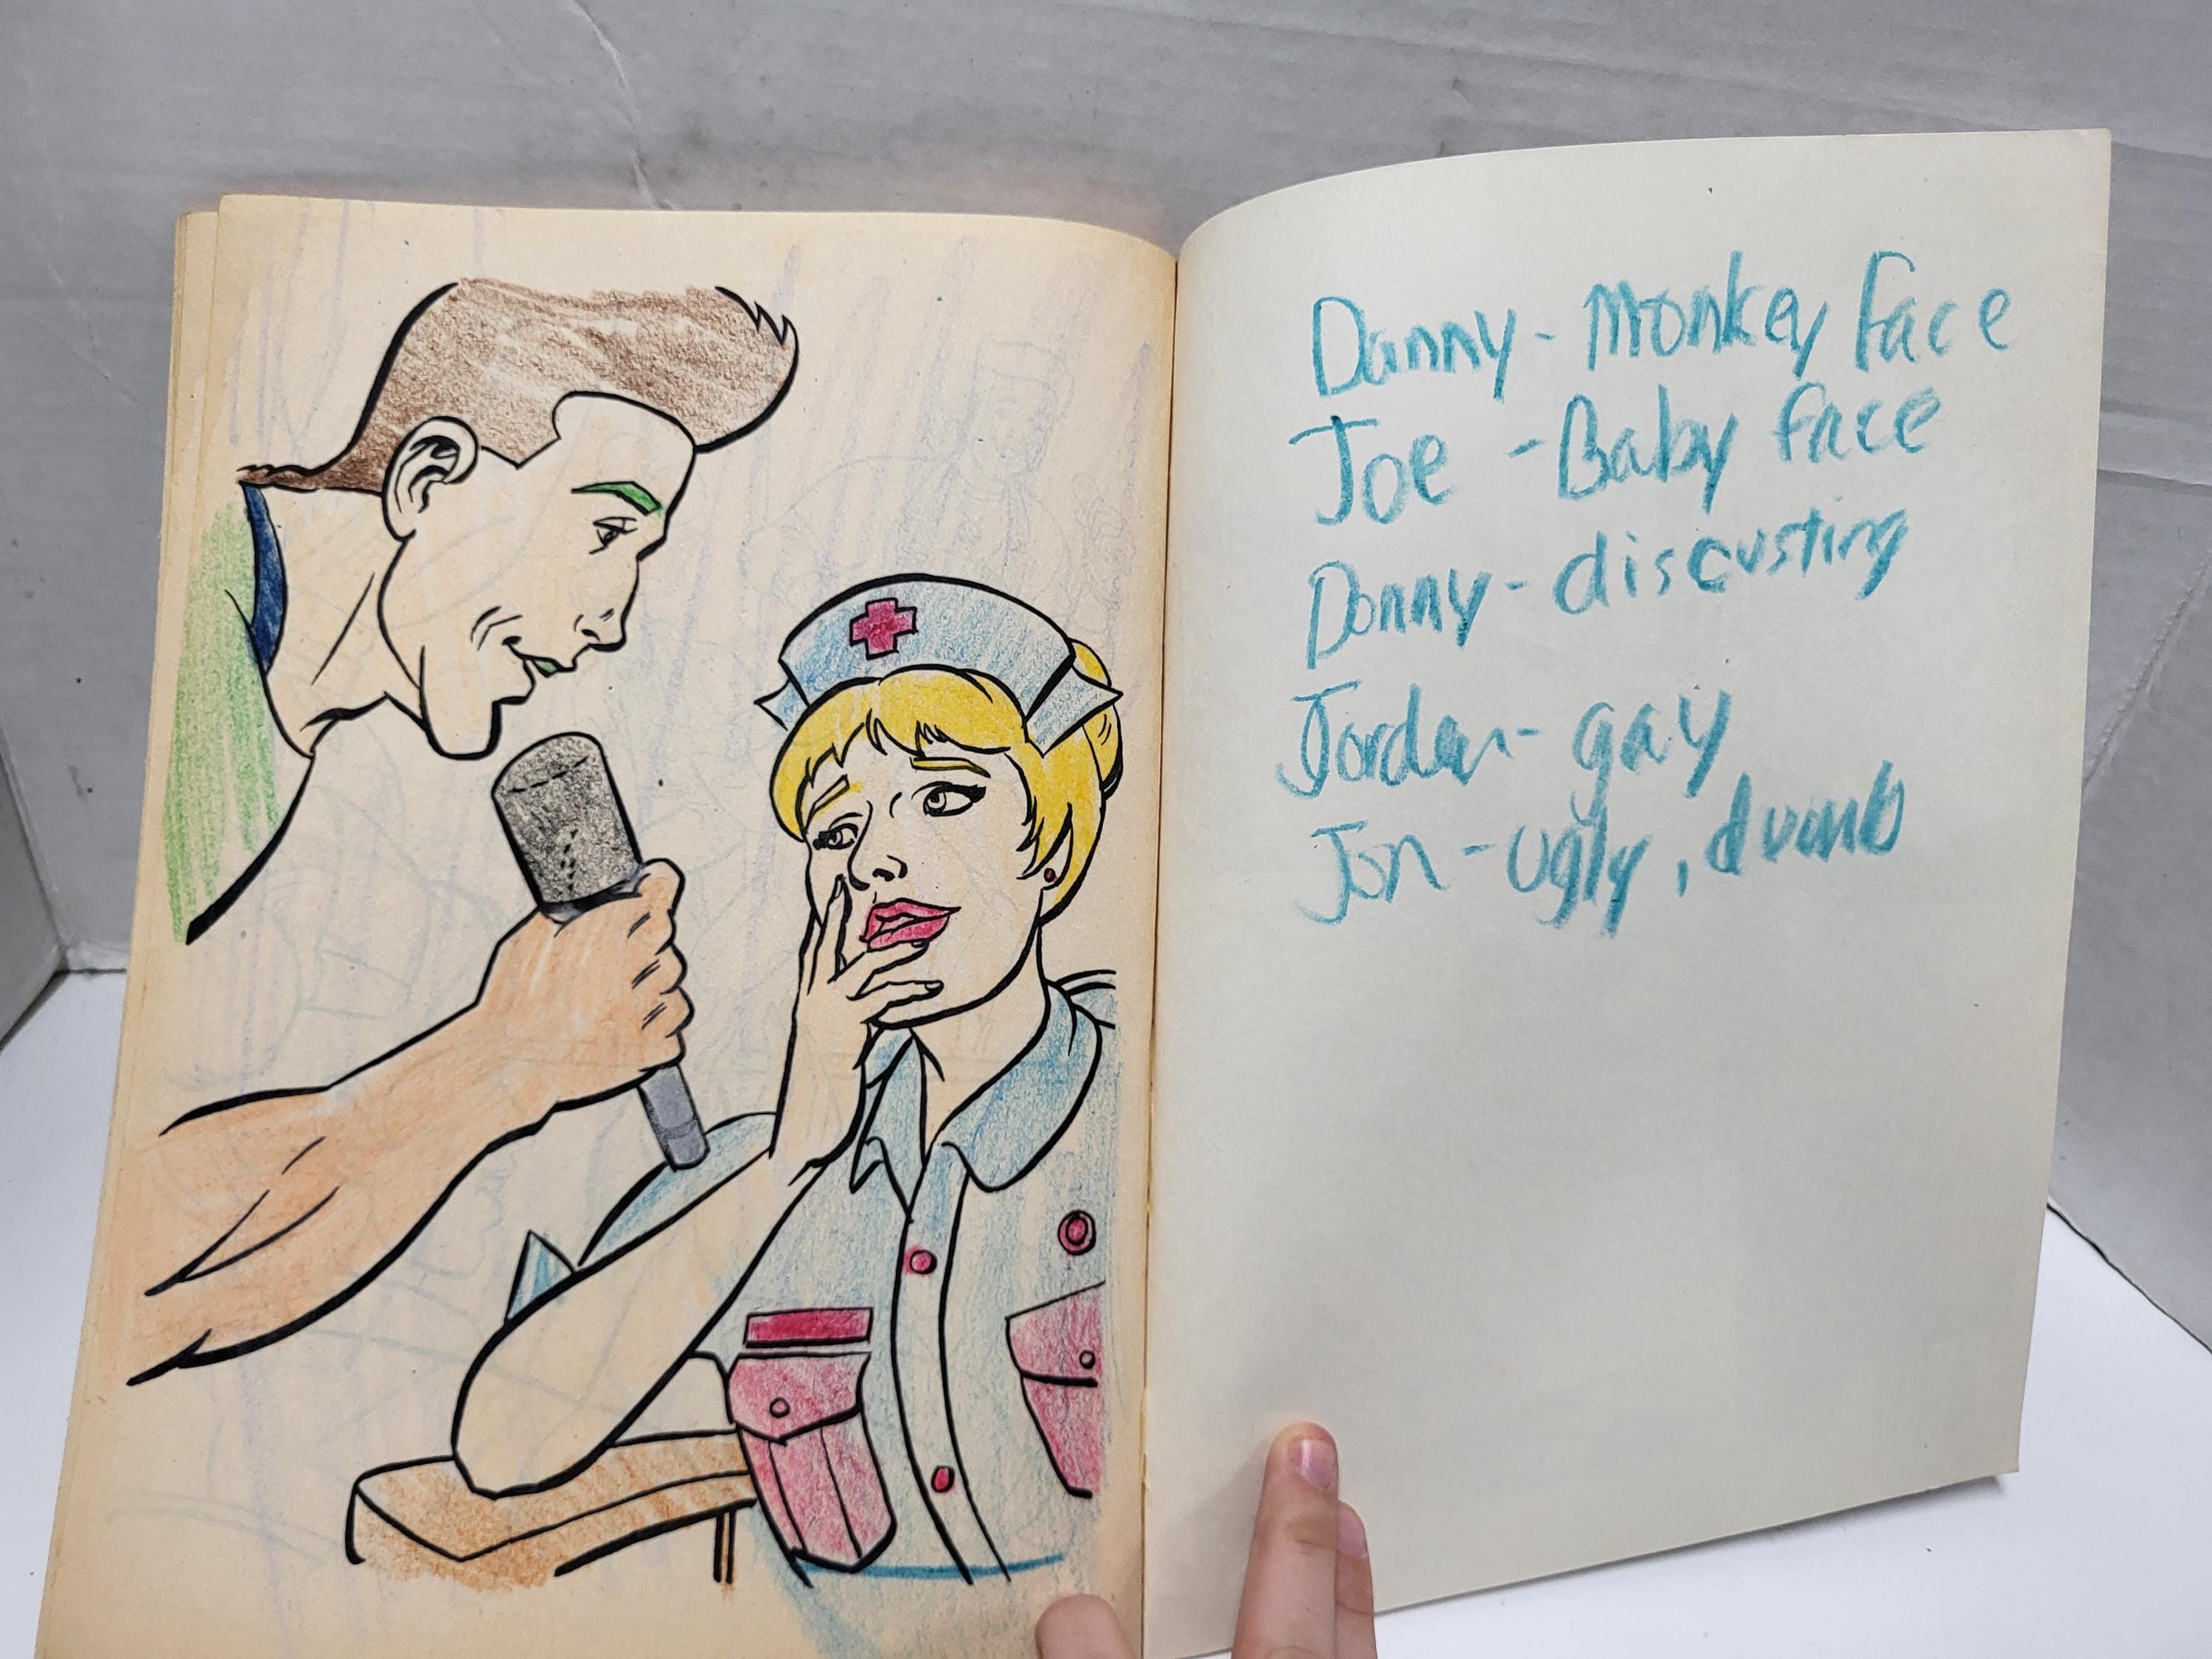 Danny - Monkey Face
Joe - Baby face
Donny - discusting
Jordan - gay
Jon - ugly, dumb